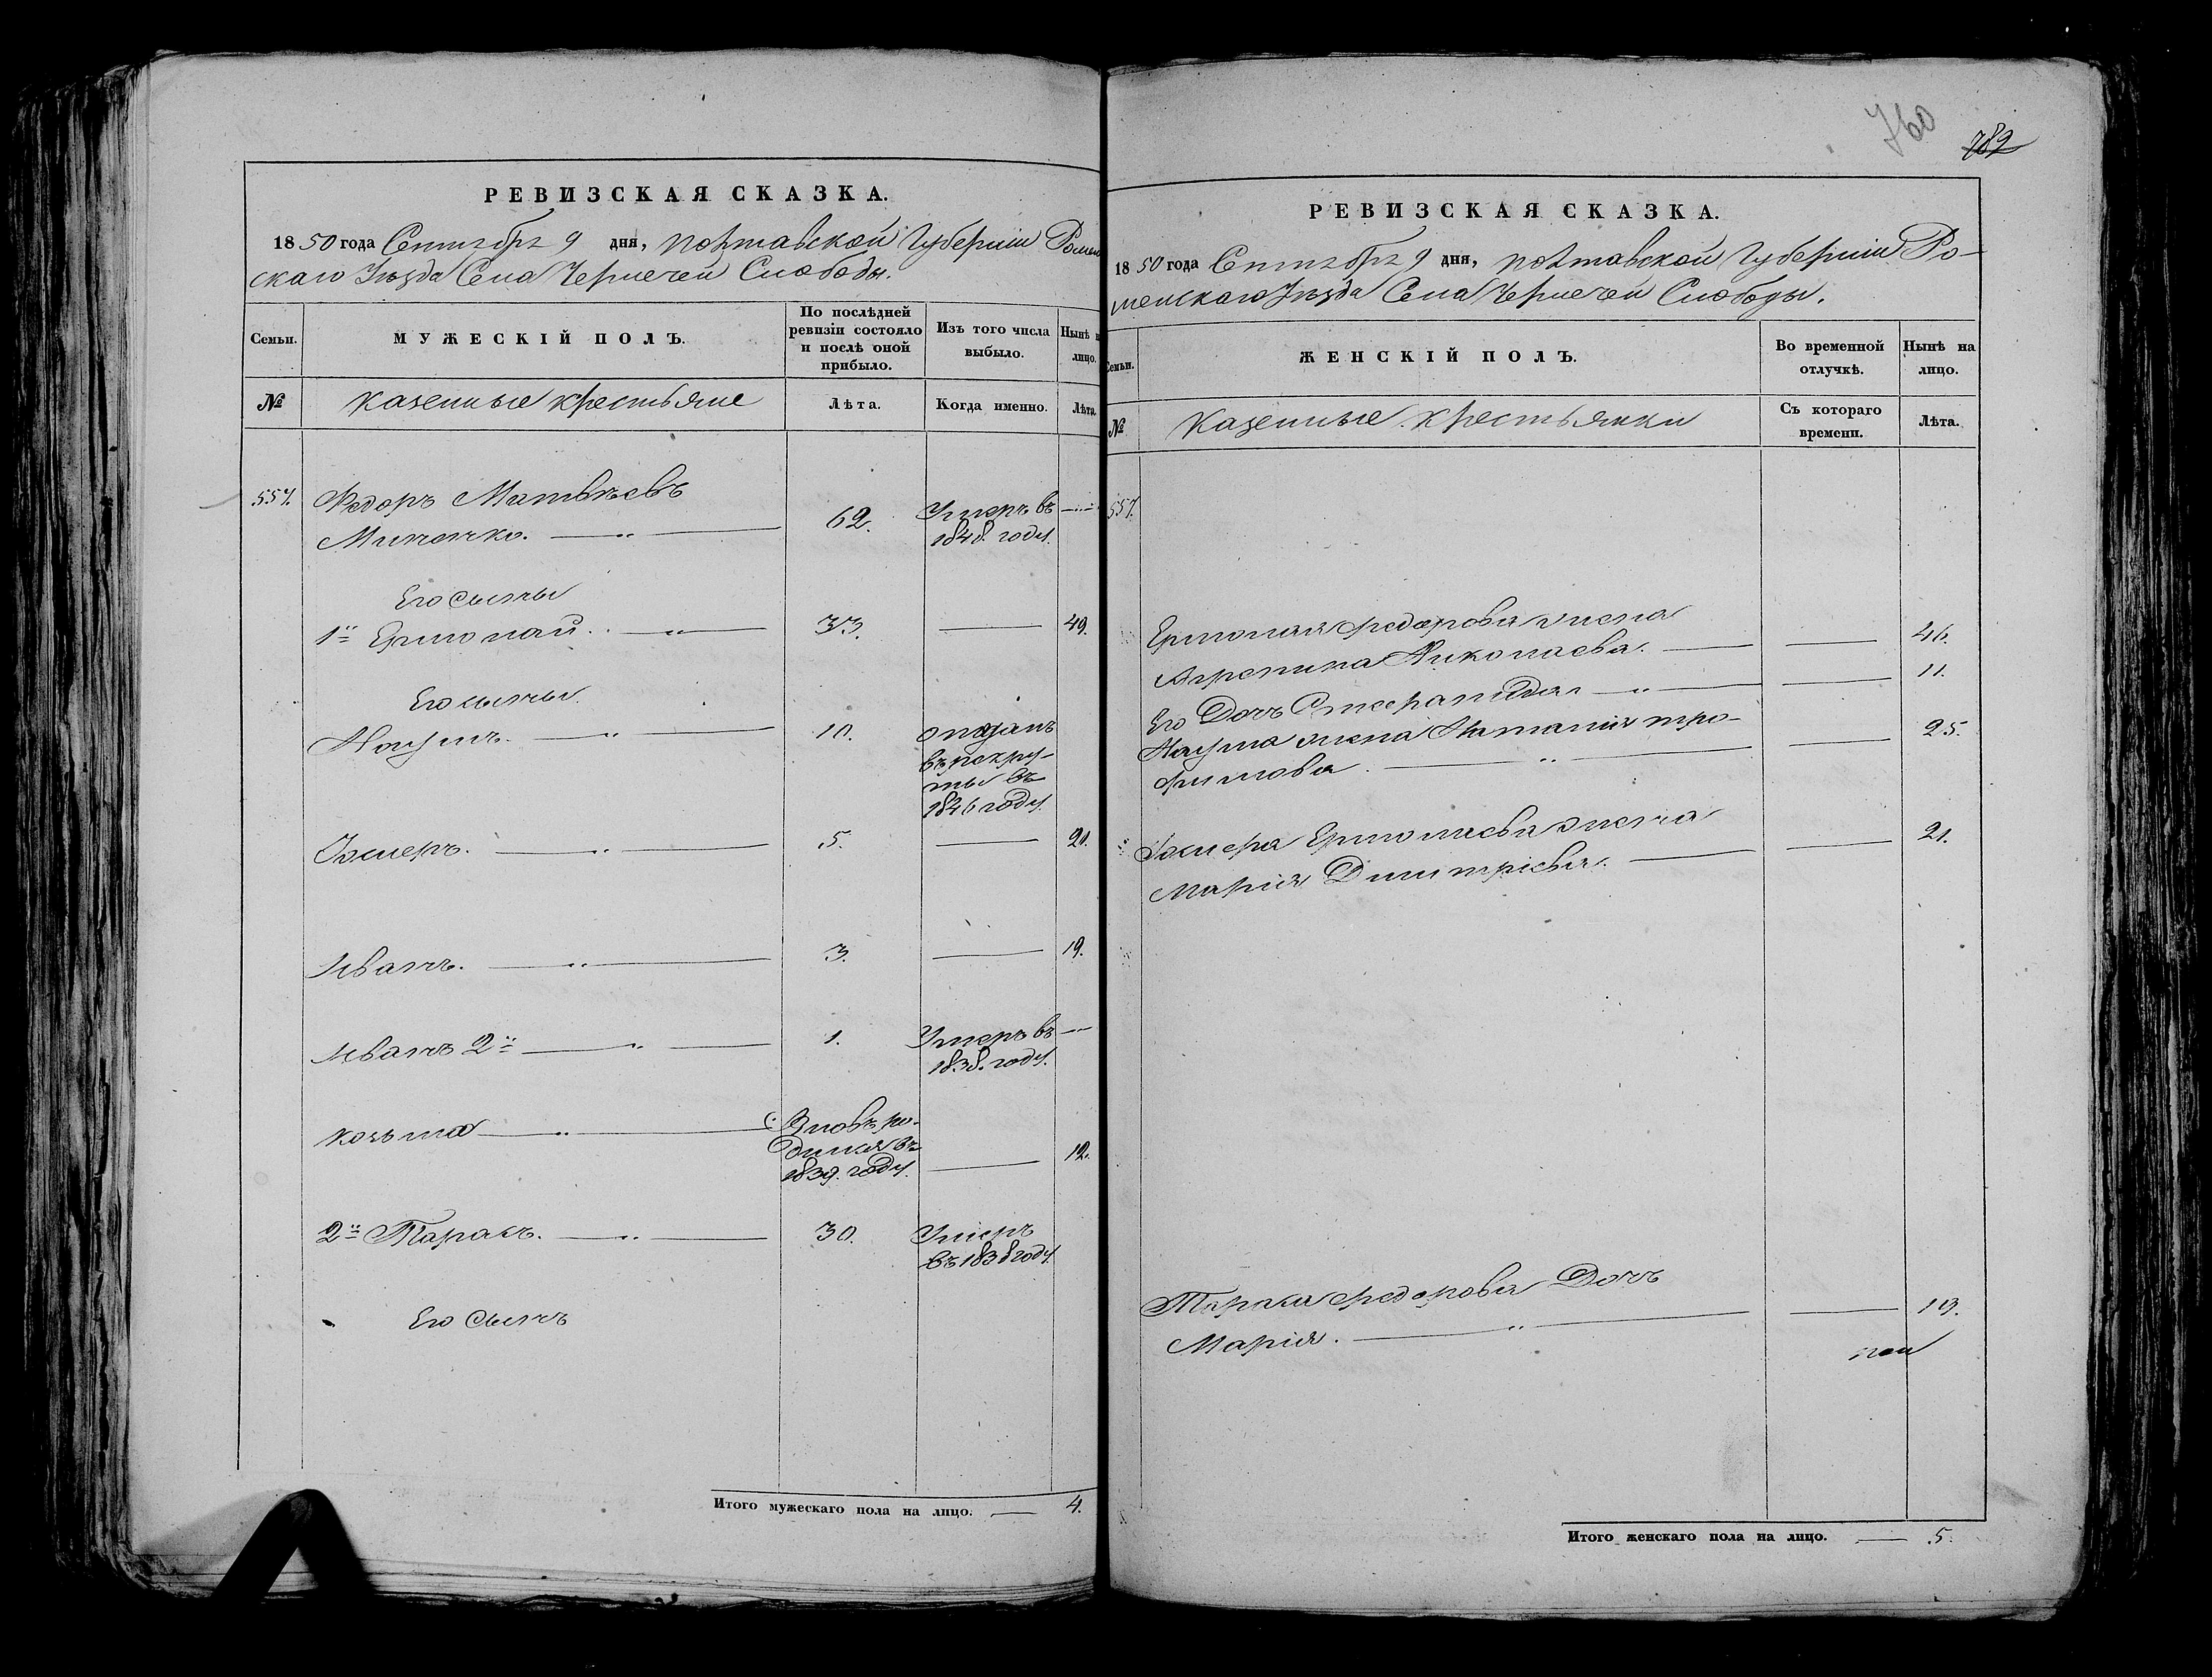 РЕВИЗСКАЯ СКАЗКА.
1850 года Сентября 9 дня, Полтавской Губернiи Ромен
скаго Уѣзда Села Чернечей Слободы.
Семьи.
МУЖЕСКІЙ ПОЛЪ.
По послѣдней
ревизіи состояло
и послѣ оной
прибыло.
Изъ того числа
выбыло.
Нынѣ н
лицо.
№
Казенные крестьяне
Лѣта.
Когда именно.
Лѣта.
557. Федоръ Матвѣевъ
62. Умеръ въ
1848. году.
Его сыны
1й Ермолай. 33. 49.
Его сыны.
Наумъ. 10. отданъ
въ рекру-
ты въ
1846 году.
5. 20.
Иванъ. 3. 19.
Иванъ 2й 1. Умеръ въ
1838. году.
Козьма Вновь ро-
дился въ
1839. году. 12.
2й Тарасъ. 30. Умеръ
въ 1838 году.
Его сынъ
Итого мужескаго пола на лицо. 4.
760
789
РЕВИЗСКАЯ СКАЗКА.
1850 года Сентября 9 дня, Полтавской Губернiи Ро-
менскаго Уѣзда Села Чернечей Слободы.
Семьи.
ЖЕНСКІЙ ПОЛЪ.
Во временной
отлучкѣ.
Нынѣ на
лицо.
№
Казенные крестьянки
Съ котораго
времени.
Лѣта.
557.
Ермолая Федорова жена
Агрепина Николаева. 46.
Его Дочь 11.
Наума жена Наталiя Тро-
фимова. 25.
Ермолаева жена
Марiя Димитрiева. 21.
Тараса Федорова Дочь
Марiя. 19.
Итого женскаго пола на лицо. 5.